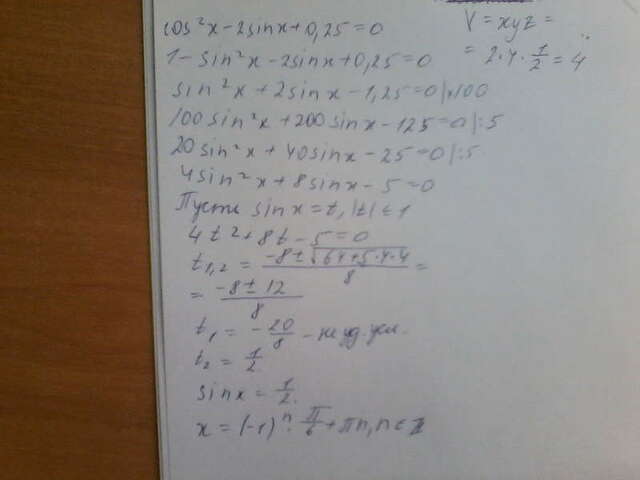 cos²x-2sinx+0,25=0
1-sin²x-2sinx+0,25=0
sin²x+2sinx-1,25=0|×100
100sin²x+200sinx-125=0|:5
20sin²x+40sinx-25=0|:5
4sin²x+8sinx-5=0
Пусть sinx=t, |t|≤1
4t²+8t-5=0
t₁,₂ = (-8±√(64+5·4·4))/8 =
= (-8±12)/8
t₁ = -20/8 - не уд. усл.
t₂ = 1/2
sinx = 1/2
x = (-1)ⁿ·π/6+πn, n∈Z
V = xyz =
= 2·4·1/2 = 4